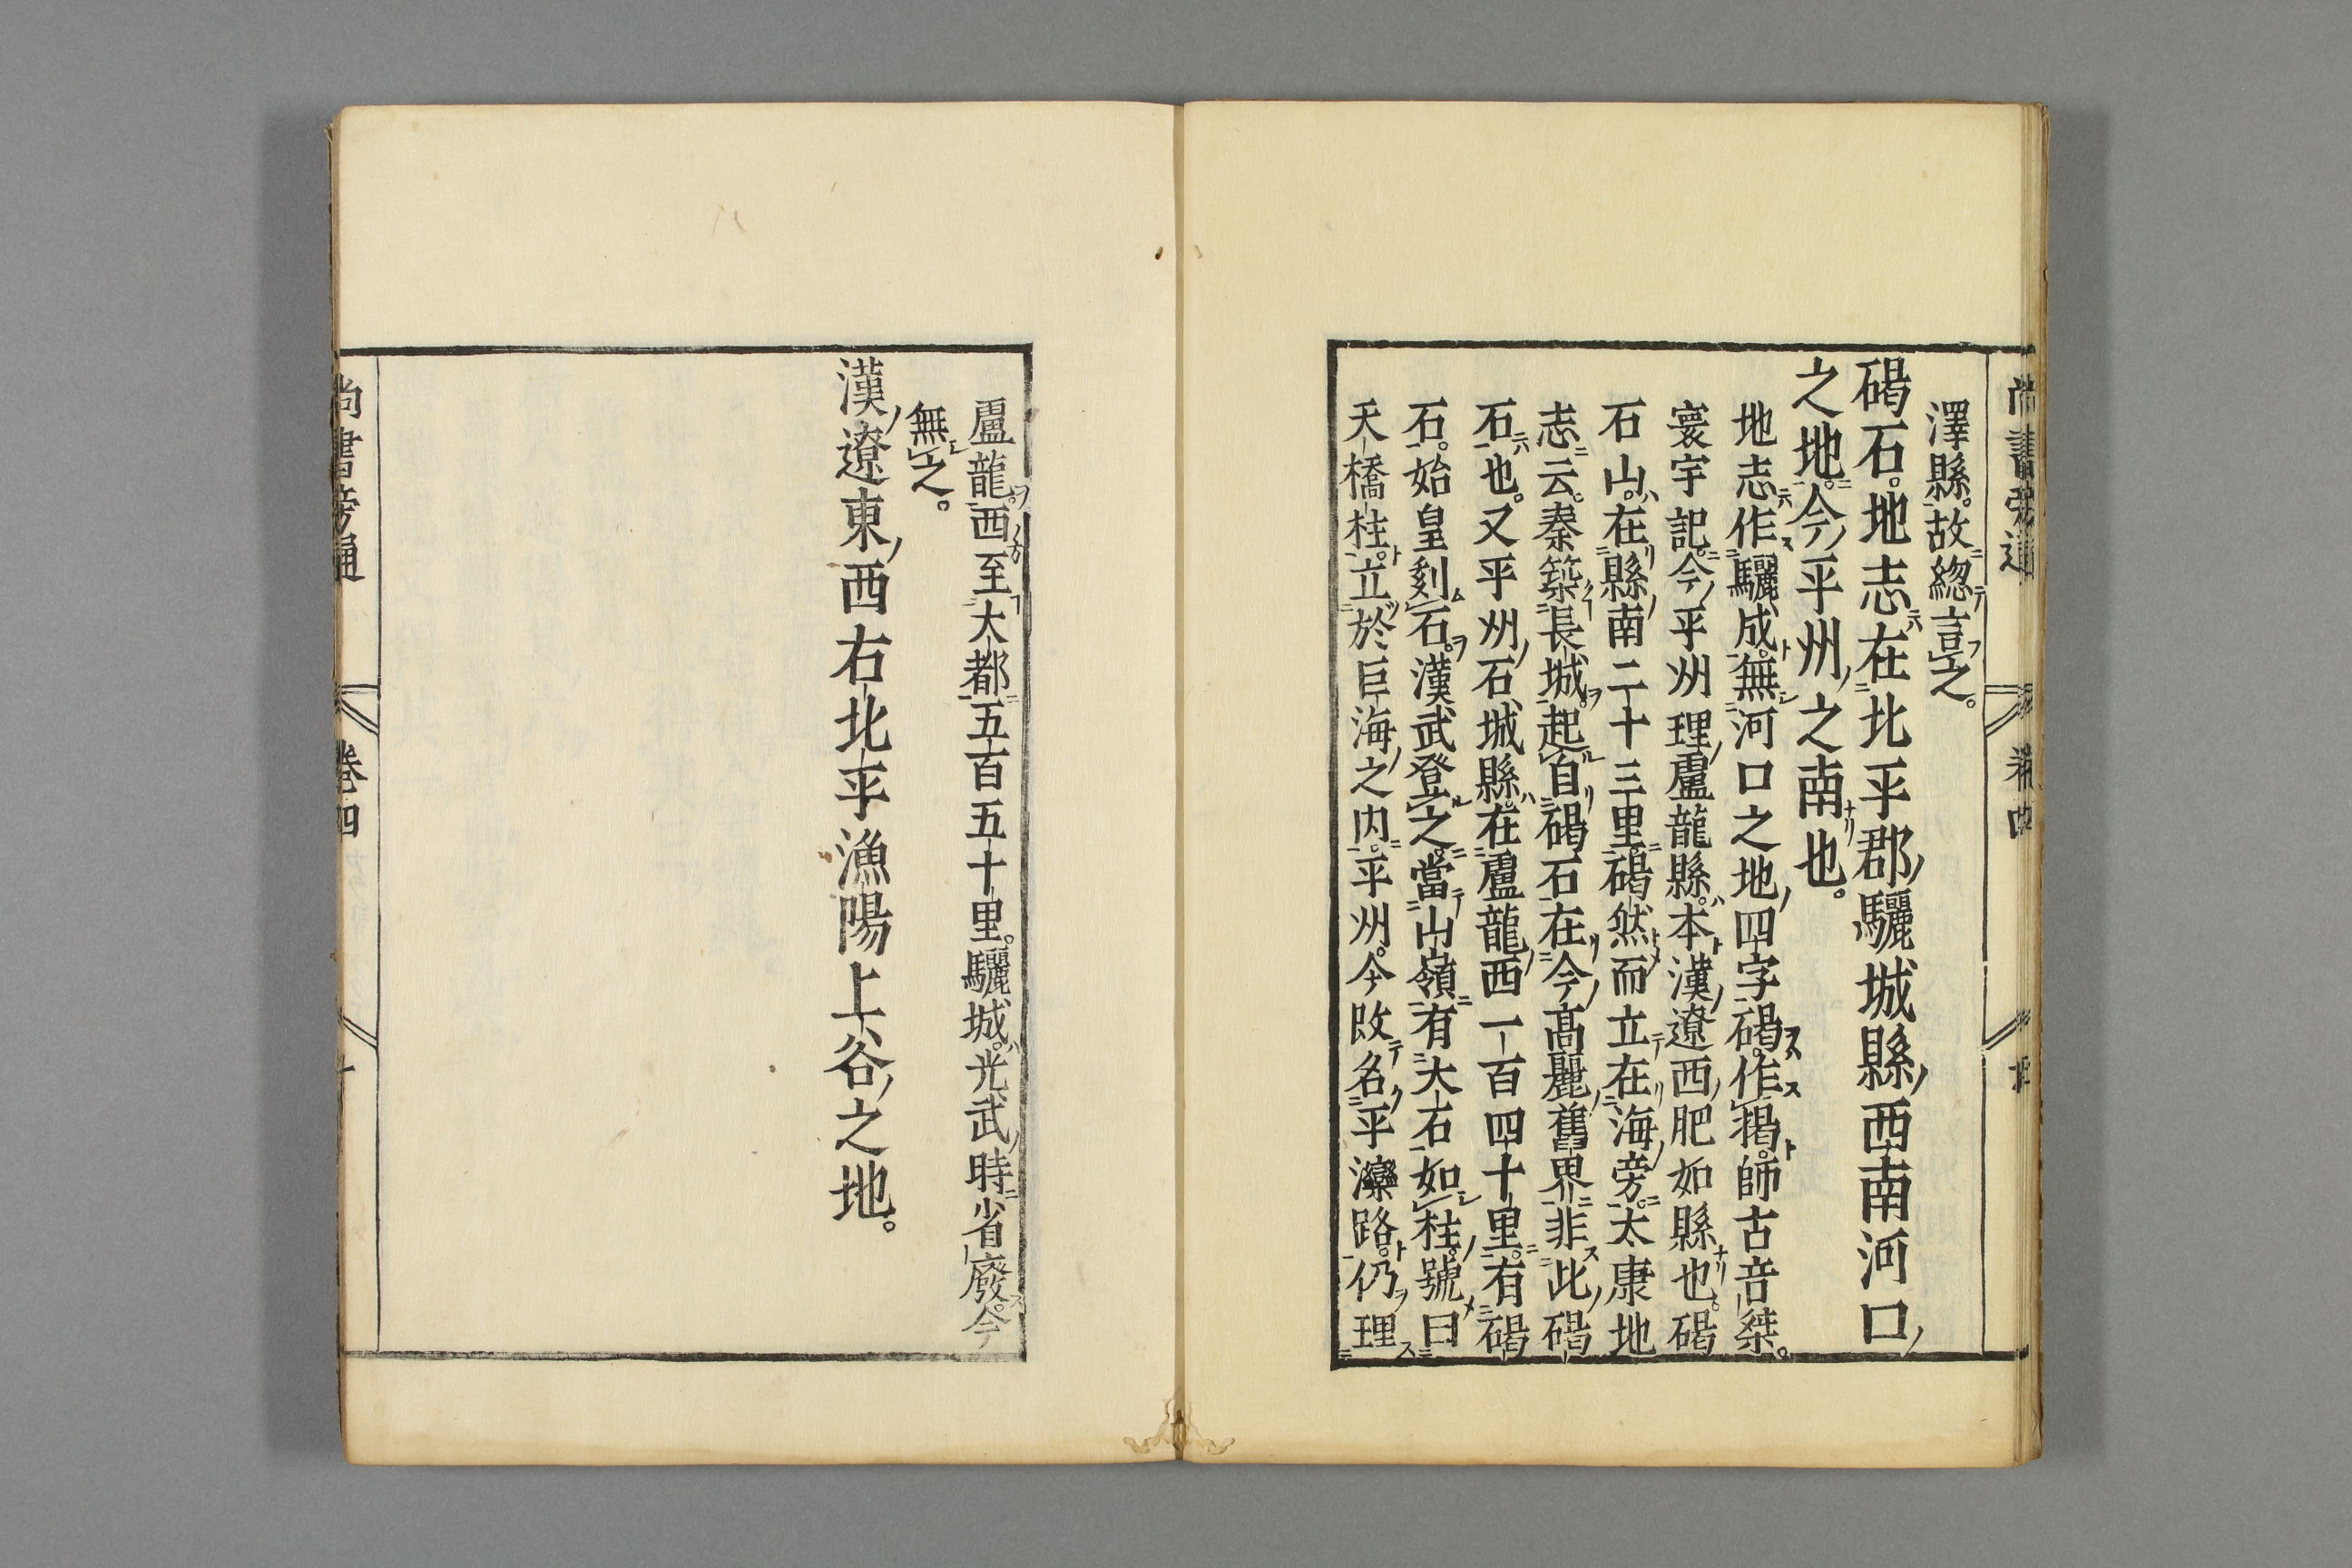 澤縣。故緫言之。
碣石。地志在北平郡驪城縣西南河口
之地。今平州之南也。
地志作驪成。無河口之地四字。碣作揭。師古音桀。
寰宇記。今平州理盧龍縣。本漢遼西肥如縣也。碣
石山。在縣南二十三里。碣然而立在海旁。太康地
志云。秦築長城。起自碣石。在今高麗舊界。非此碣
石也。又平州石城縣。在盧龍西一百四十里。有碣
石。始皇刻石。漢武登之。當山嶺有大石如柱。號曰
天橋柱。立於巨海之内。平州。今改名平灤路。仍理
盧龍。西至大都五百五十里。驪城。光武時省廢。今
無之。
漢遼東西右北平漁陽上谷之地。
尚書旁通
卷四